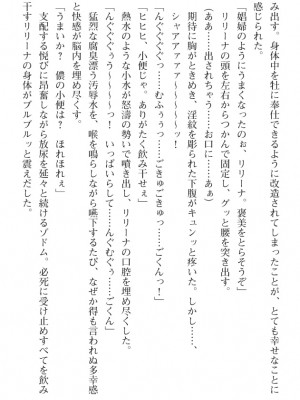 み出す。身体中を牡に奉仕できるように改造されてしまったことが、とても幸せなことに
感じられた。
「娼婦のようにうまくなったのぉ、リリーナ。褒美をとらそうぞ」
リリーナの頭を左右からつかんで固定し、グッと腰を突き出す。
(ああ……出されちゃう……お口に……あぁ)
期待に胸がときめき、淫紋を彫られた下腹がキュンッと疼いた。しかし……
シャアアアァ～～～～ッ！
「んぐぐぐっ……むふぅぅっ……ごきゅごきゅっ……ごくんっ！」
「ヒヒヒ、小便じゃ。ありがたく飲み干せぇ」
熱水のような小水が怒濤の勢いで噴き出し、リリーナの口腔を埋め尽くした。
「んぐぐぐぅう～～～～っ！ いっぱいらして……んぐむぐぅ……ごくんっ」
猛烈な腐臭漂う汚辱水を、喉を鳴らしながら嚥下するたび、なぜか得も言われぬ多幸感
と快感が脳内を埋め尽くす。
「うまいか？ 儂の小便は？ ほれほれぇ」
支配する悦びに昂奮しながら放尿を延々と続けるゾドム。必死に受け止めすべてを飲み
干すリリーナの身体がブルブルッと震えだした。